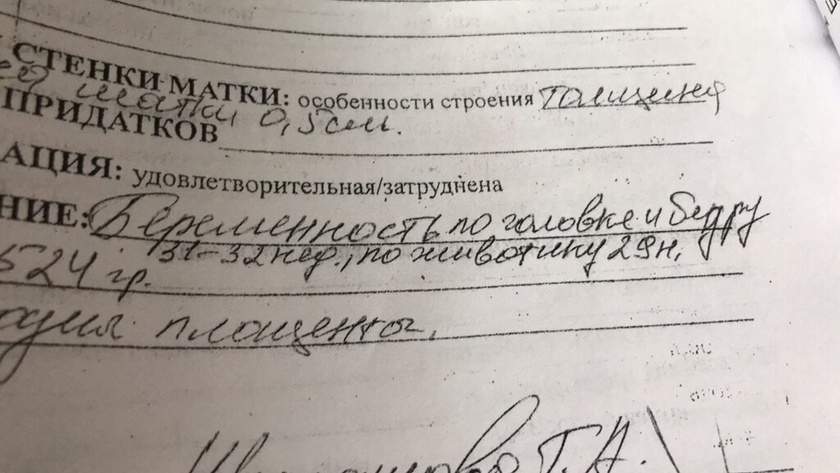 СТЕНКИ МАТКИ: особенности строения толщина
матки 0,5см.
ПРИДАТКОВ
АЦИЯ: удовлетворительная/затруднена
НИЕ: Беременность по головке и бедру
31-32 нед., по животику 29н,
524 гр.
плаценты.
Т.А.